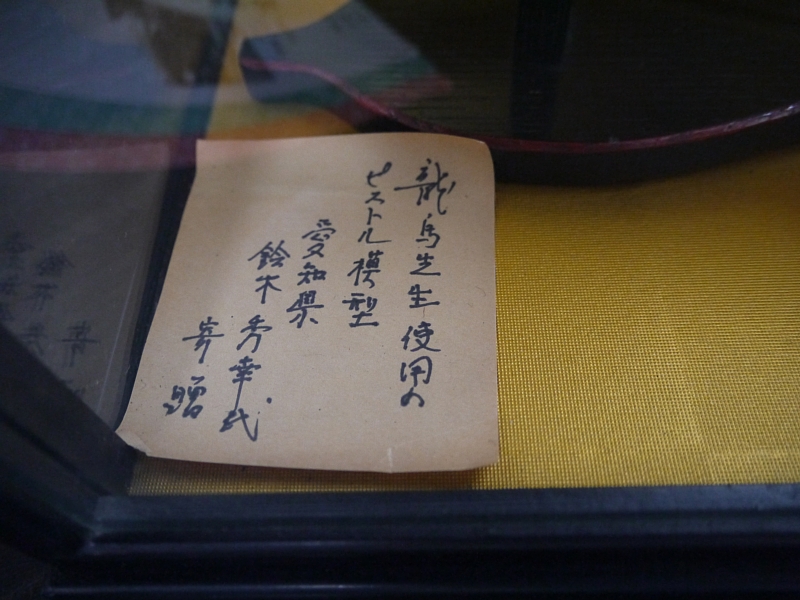 龍馬先生使用の
ピストル模型
愛知県
鈴木秀幸氏
寄贈